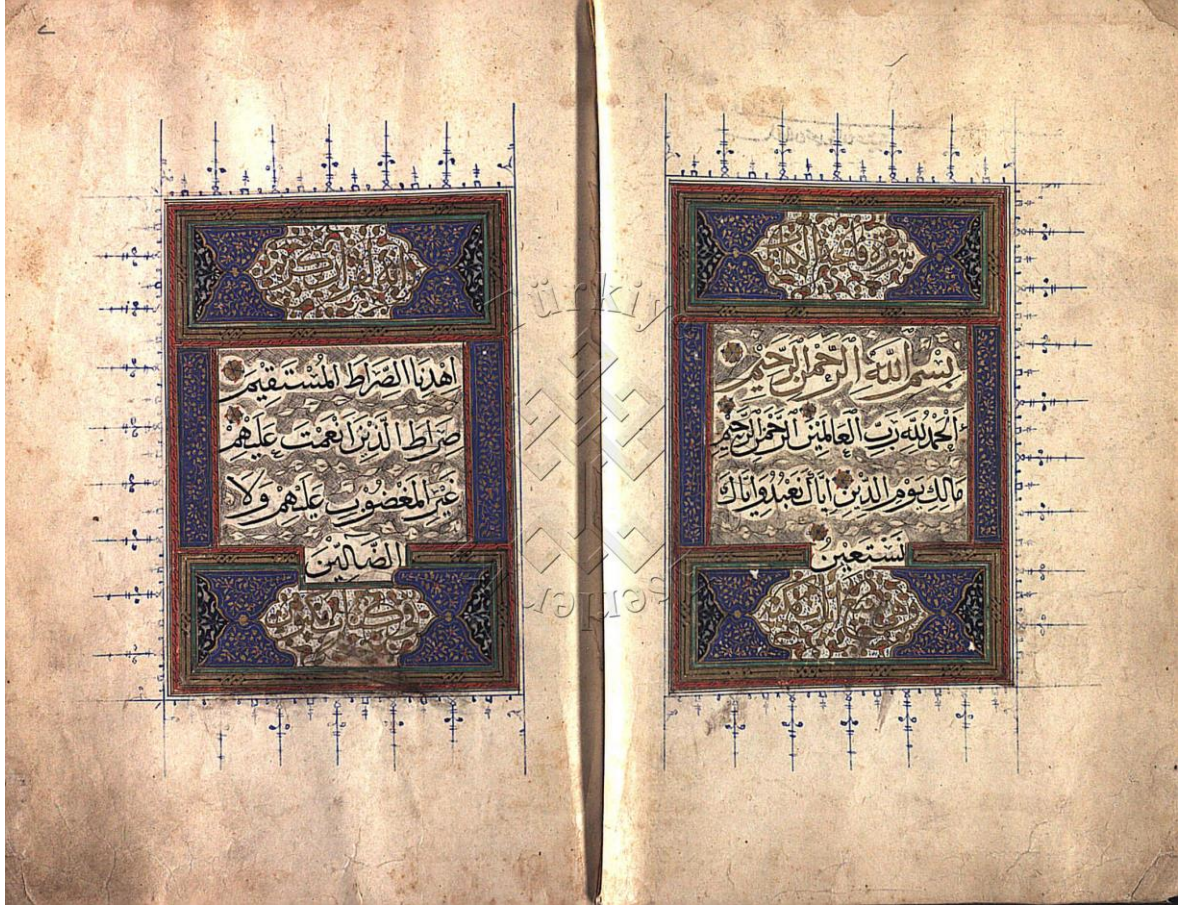 سورة فاتحة الكتاب
بِسْمِ اللَّهِ الرَّحْمَٰنِ الرَّحِيمِ
اَلْحَمْدُ لِلَّهِ رَبِّ الْعَالَمِينَ الرَّحْمَٰنِ الرَّحِيمِ
مَالِكِ يَوْمِ الدِّينِ اِيَّاكَ نَعْبُدُ وَاِيَّاكَ
نَسْتَعِينُ
انه لقرآن كريم
اِهْدِنَا الصِّرَاطَ الْمُسْتَقِيمَ
صِرَاطَ الَّذِينَ اَنْعَمْتَ عَلَيْهِمْ
غَيْرِ الْمَغْضُوبِ عَلَيْهِمْ وَلَا
الضَّالِّينَ
في كتاب مكنون
Türkiye